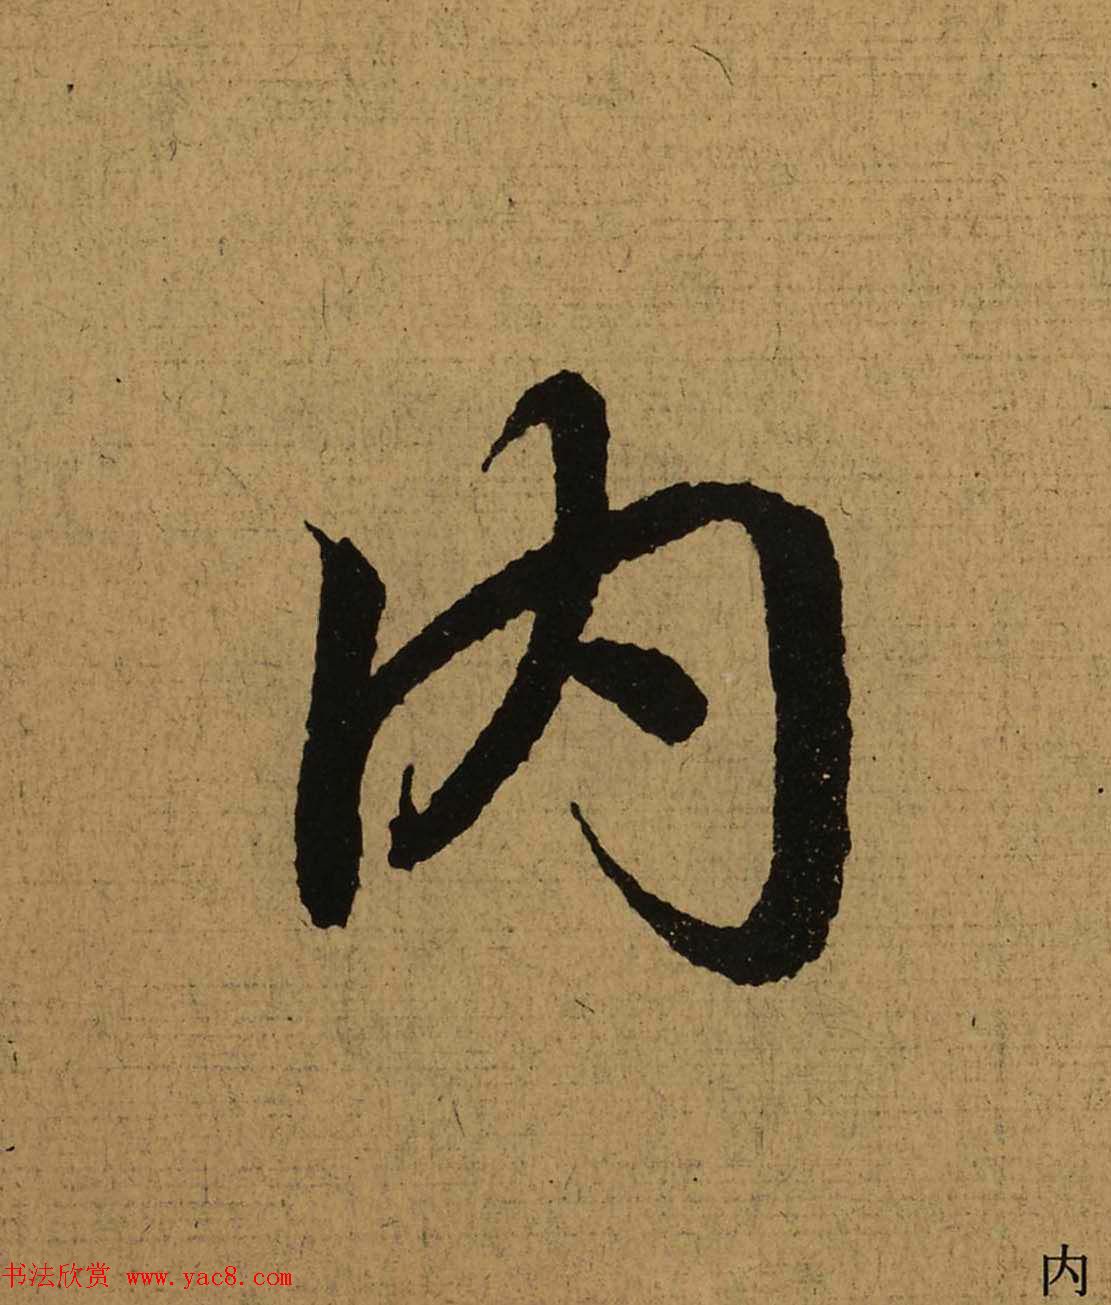 内
书法欣赏 www.yac8.com
内